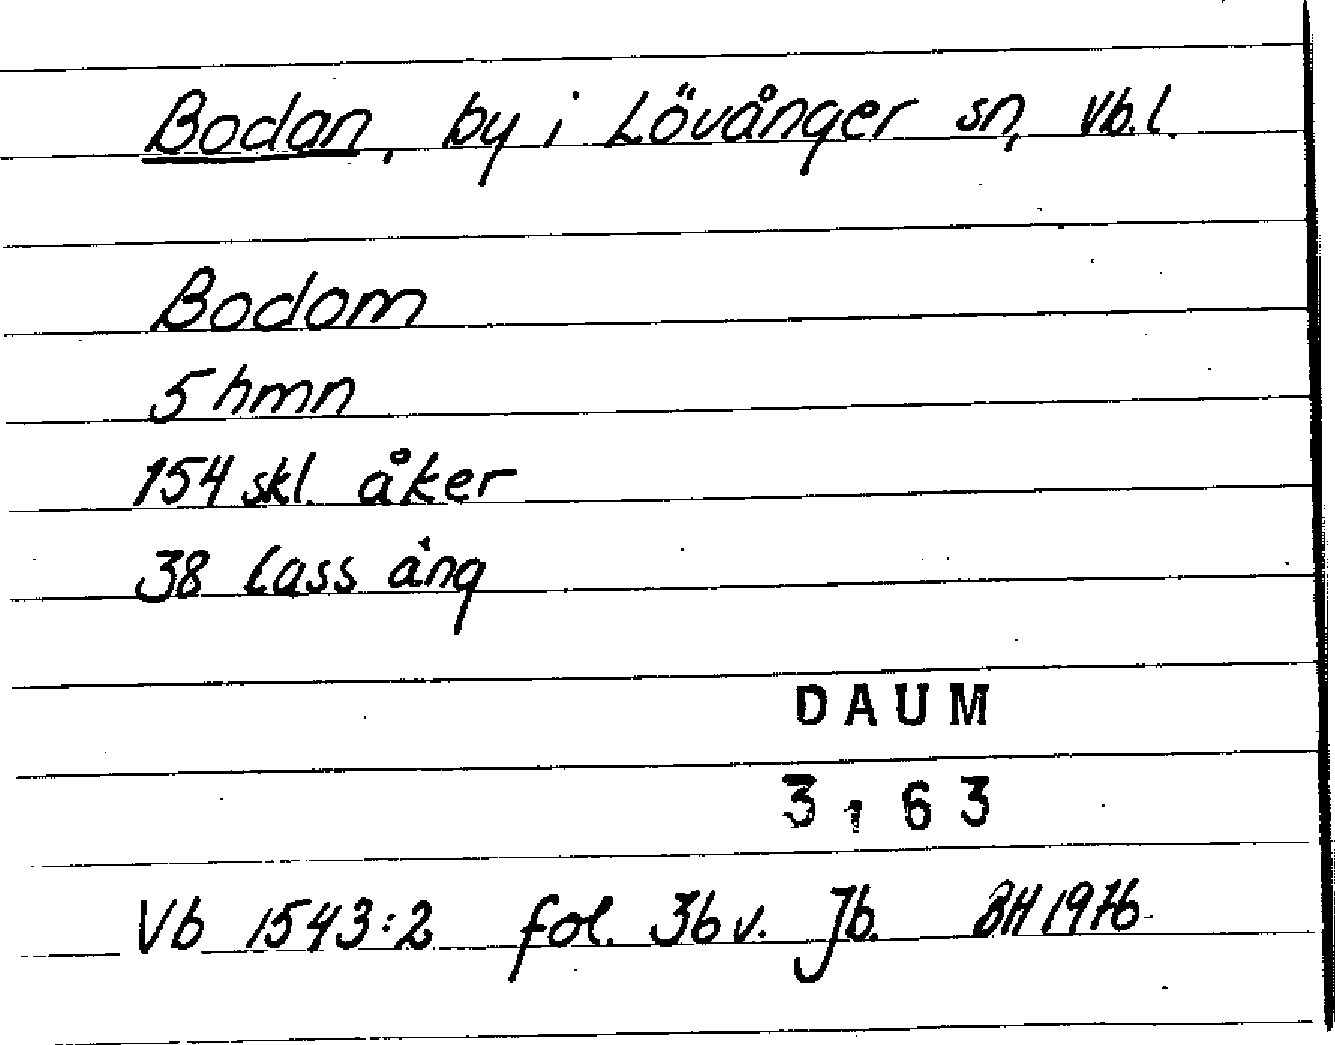 Bodan, by i Lövånger sn, Vb.l.
Bodom
5 hmn
154 skl. åker
38 lass äng
DAUM
3163
Vb 1543:2 fol. 36 v. Jb. BH 1976